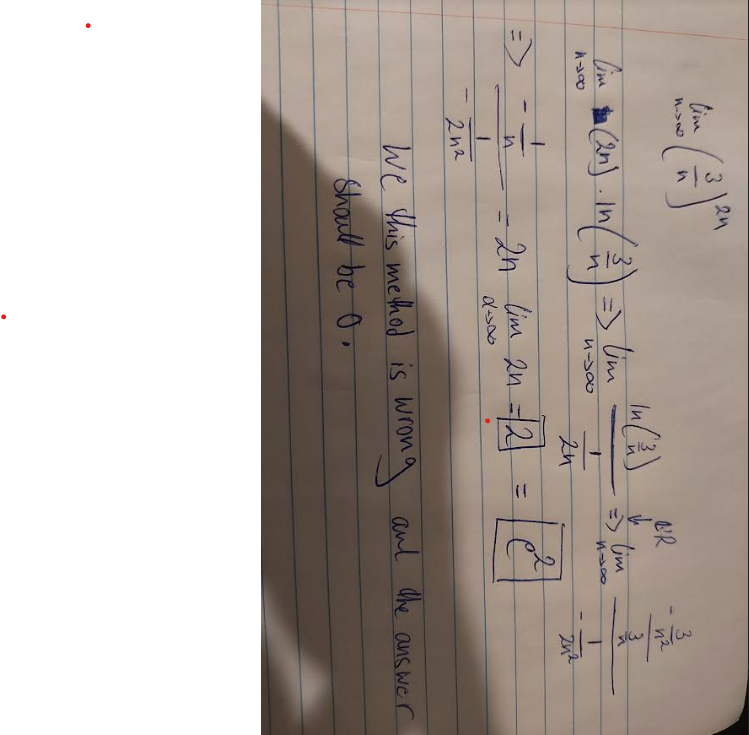 lim n→∞ (3/n)^2n
lim n→∞ (2n) · ln(3/n) => lim n→∞ ln(3/n) / (1/2n) ↓ L'R => lim n→∞ ((-3/n²) / (3/n)) / (-1/2n²)
=> (-1/n) / (-1/2n²) = 2n lim n→∞ 2n = 2 = e²
We this method is wrong and the answer
should be 0.